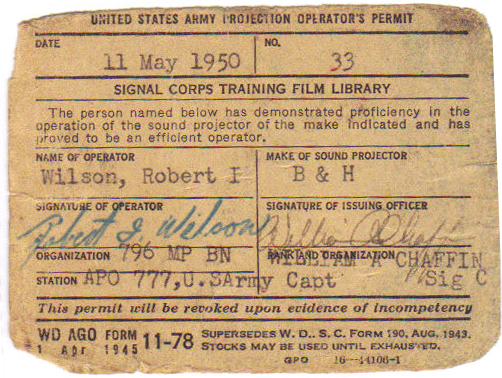 UNITED STATES ARMY PROJECTION OPERATOR'S PERMIT
DATE NO.
11 May 1950 33
SIGNAL CORPS TRAINING FILM LIBRARY
The person named below has demonstrated proficiency in the
operation of the sound projector of the make indicated and has
proved to be an efficient operator.
NAME OF OPERATOR MAKE OF SOUND PROJECTOR
Wilson, Robert I B & H
SIGNATURE OF OPERATOR SIGNATURE OF ISSUING OFFICER
Robert I Wilson William A Chaffin
ORGANIZATION 796 MP BN RANK AND ORGANIZATION
WILLIAM A CHAFFIN
STATION APO 777, U.S Army Capt Sig C
This permit will be revoked upon evidence of incompetency
WD AGO FORM 11-78 SUPERSEDES W. D., S. C. FORM 190, AUG. 1943.
1 Apr 1945 STOCKS MAY BE USED UNTIL EXHAUSTED.
GPO 16—44106-1